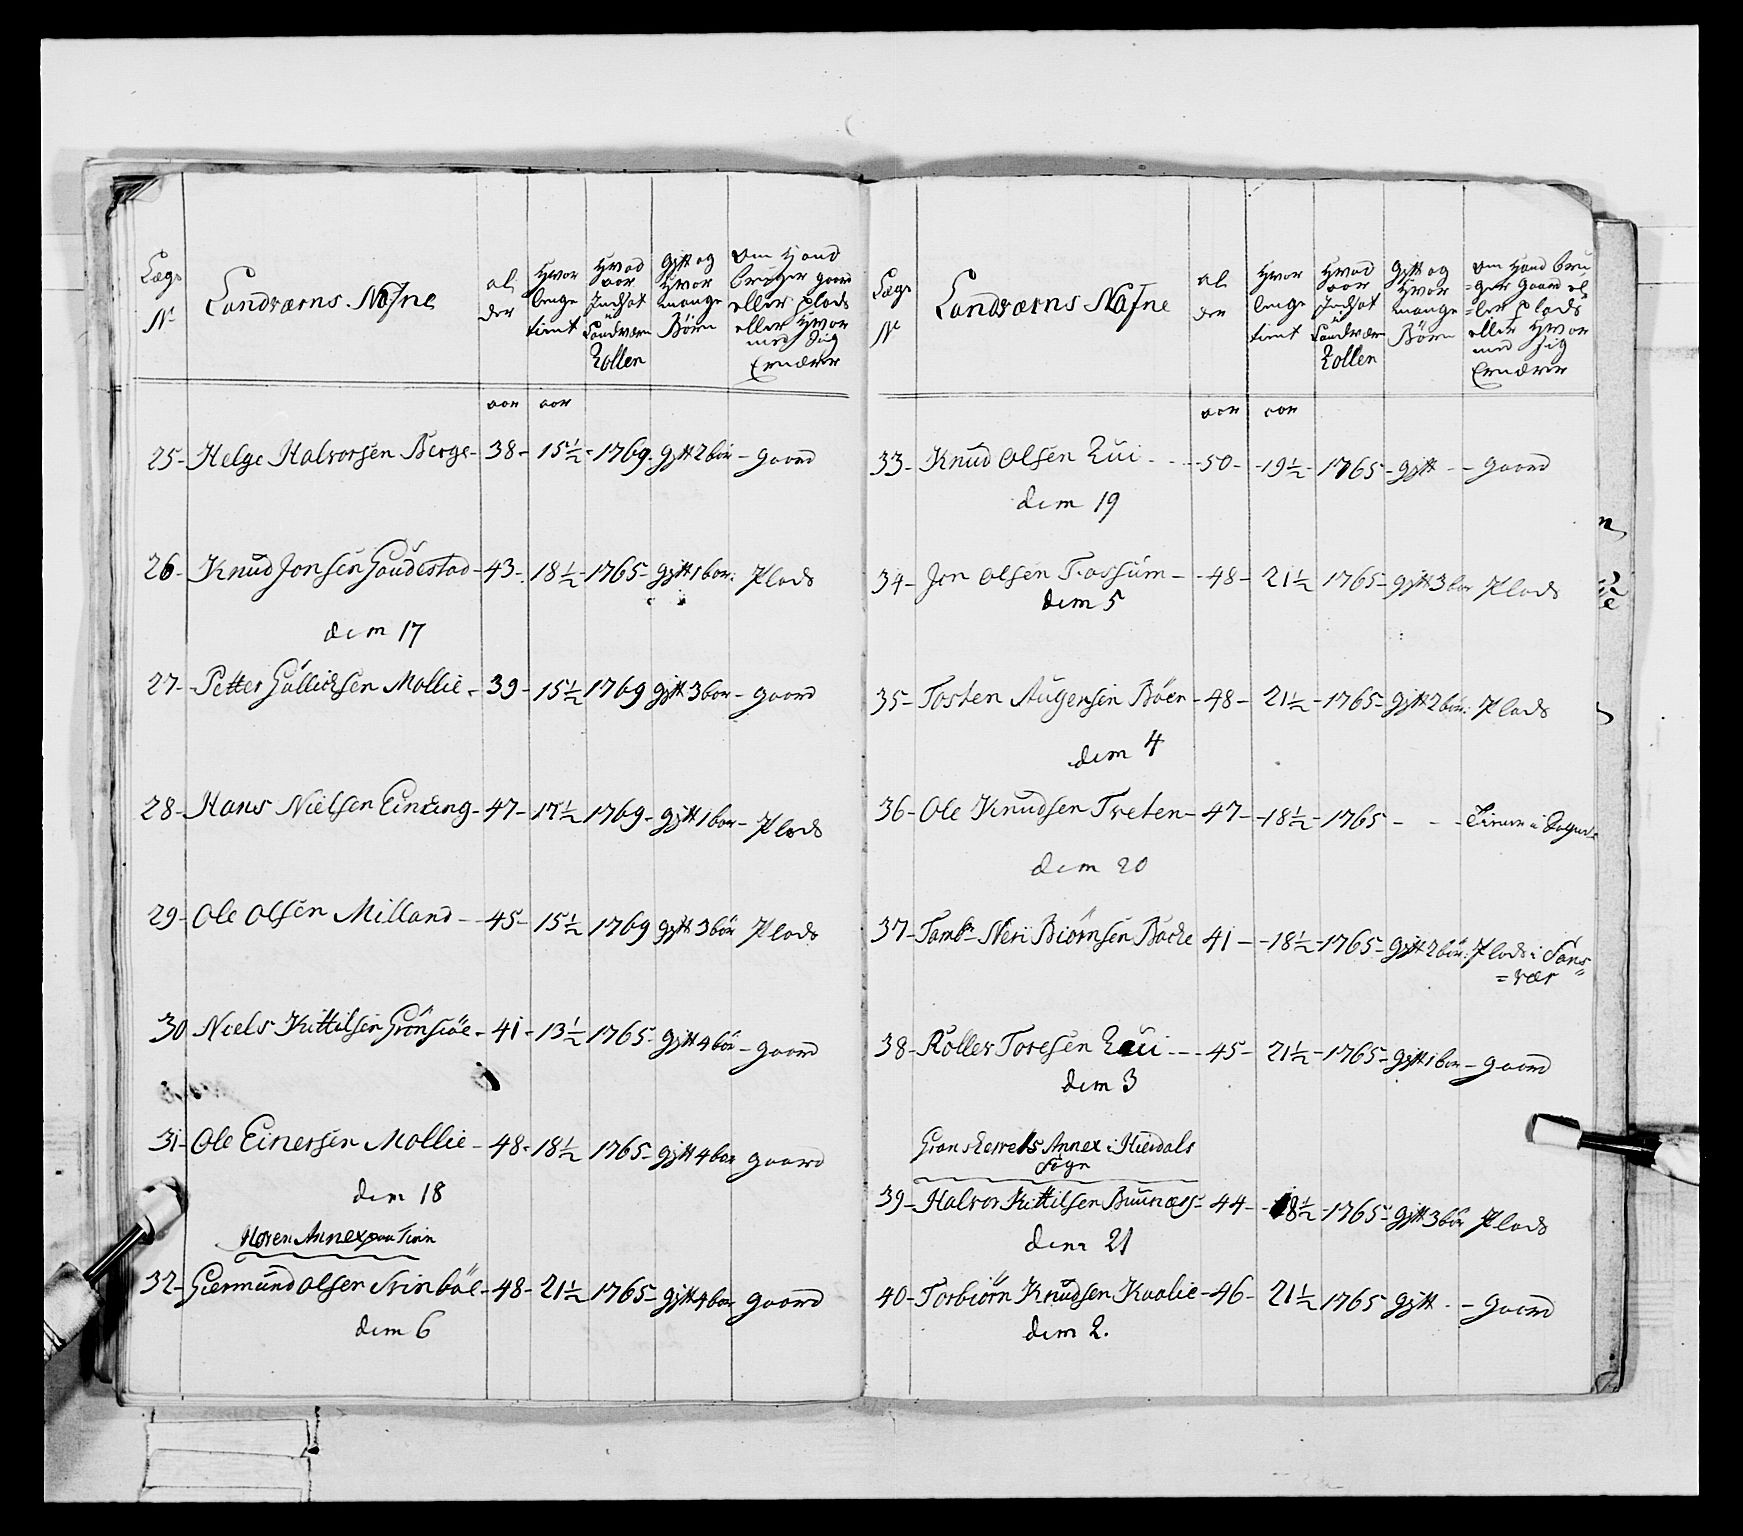 Lægs N° Landværns Nafne al der Hvor lenge tient Hvad aar Indsat i Landværn Rollen Gift og Hvor mange Börn Om Hand bruger gaard eller Plads eller Hvor med Sig Ernærer
aar aar
25 - Helge Halvorsen Berge - 38 - 15½ - 1769 - gift 2 bör - gaard
26 - Knud Jonsen Gaudestad - 43 - 18½ - 1765 - gift 1 bar: Plads
dem 17
27 - Petter Gullichsen Mollie - 39 - 15½ 1769 gift 3 bar - gaard
28 - Hans Nielsen Eineng - 47 - 17½ 1769 - gift 1 bar - Plads
29 - Ole Olsen Milland - 45 - 15½ 1769 gift 3 bör Plads
30 Niels Kittilsen Grönsiöe - 41 - 13½ 1765 - gift 4 bör - gaard
31 - Ole Einersen Mollie - 48 - 18½ 1765 - gift 4 bar gaard
dem 18
Hoven Annex paa Tinn
32 - Giermund Olsen Svinböl - 48 - 21½ 1765 - gift 4 bar gaard
dem 6
Lægs N° Landværns Nafne al der Hvor lenge tient Hvad aar Indsat i Landværn Rollen Gift og Hvor mange Börn Om Hand bru= =ger Gaard el= =ler Plads eller Hvor med sig Ernærer
aar aar
33 - Knud Olsen Lui - - 50 - - 19½ - 1765 - gift - - gaard
dem 19
34 - Jon Olsen Fossum - - 48 - 21½ 1765 - gift 3 bar Plads
dem 5
35 - Tosten Augensen Böen - 48 - 21½ - 1765 - gift 2 bör: Plads
dem 4
36 - Ole Knudsen Treten - 47 - - 18½ - 1765 - - -
dem 20
37 - Tambr Neri Biörnsen Backe 41 - - 18½ - 1765 - gift 2 bör: Plads i Sans= =vær
38 - Roller Toresen Lui - - - 45 - 21½ - 1765 - gift 1 bar - gaard
dem 3
Gransherrets Annex i Hierdals Sogn
39 - Halvor Kittilsen Buunæss - 44 - - 18½ - 1765 - gift 3 bör Plads
dem 21
40 - Torbiörn Knudsen Kaalie - 46 - 21½ 1765 gift - - gaard
dem 2.